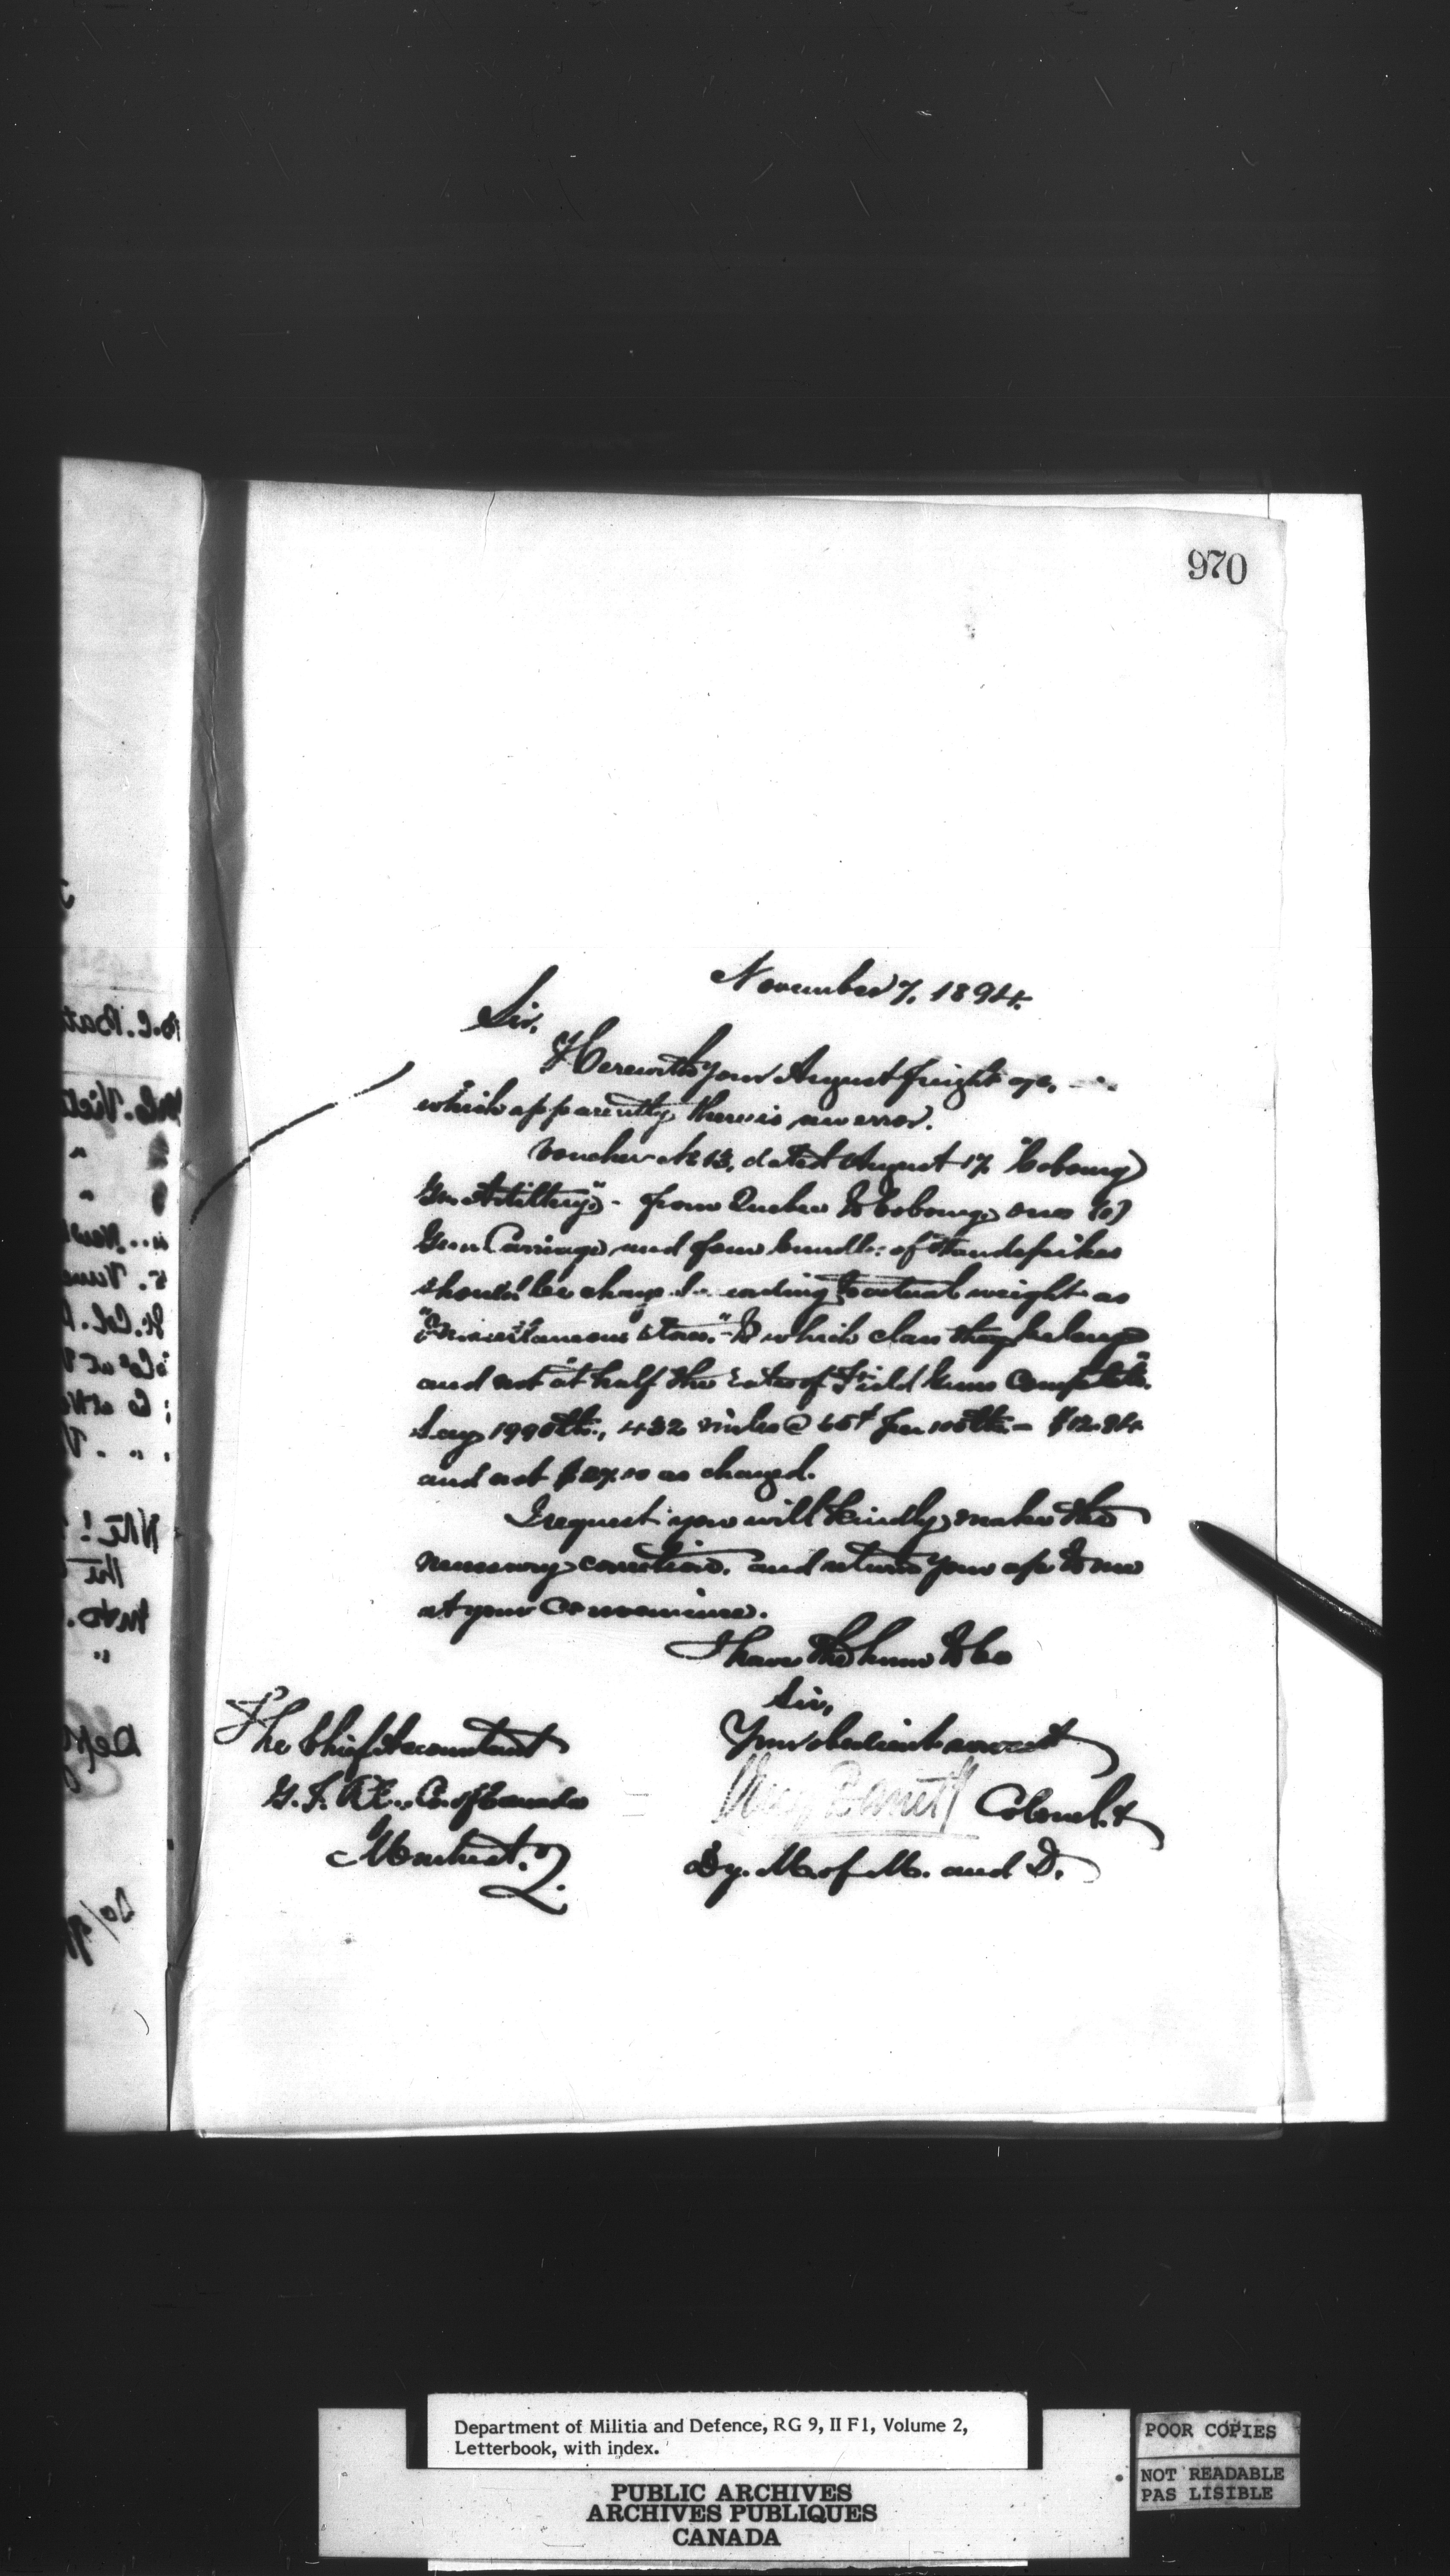 970
November 7. 1894.
Sir,
Herewith your August freight a/c,
which apparently there is an error.
Voucher No 13, dated August 17. "Cobourg
Gn. Artillery" - from Quebec to Cobourg, one (1)
Gun Carriage and four bundles of Handspikes
should be charged according to actual weight as
"Miscellaneous Stores" - to which class they belong
and not at half the rates of "Field Guns Complete".
Say 1990 lbs., 432 miles @ 65¢ per 100 lbs. - $12.94
and not $27.10 as charged.
I request you will kindly make the
necessary correction, and return your a/c to me
at your convenience.
I have the honor to be
Sir,
Your obedient servant
Colonel &
Dy. M. of M. and D.
The Chief Accountant
G. T. Ry. Co. of Canada
Montreal. Q.
Department of Militia and Defence, RG 9, II F1, Volume 2,
Letterbook, with index.
PUBLIC ARCHIVES
ARCHIVES PUBLIQUES
CANADA
POOR COPIES
NOT READABLE
PAS LISIBLE